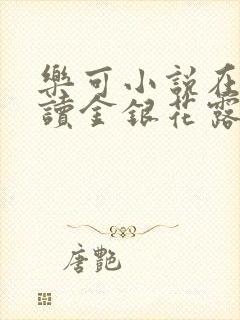 樂可小說在
讀金銀花露
唐艷